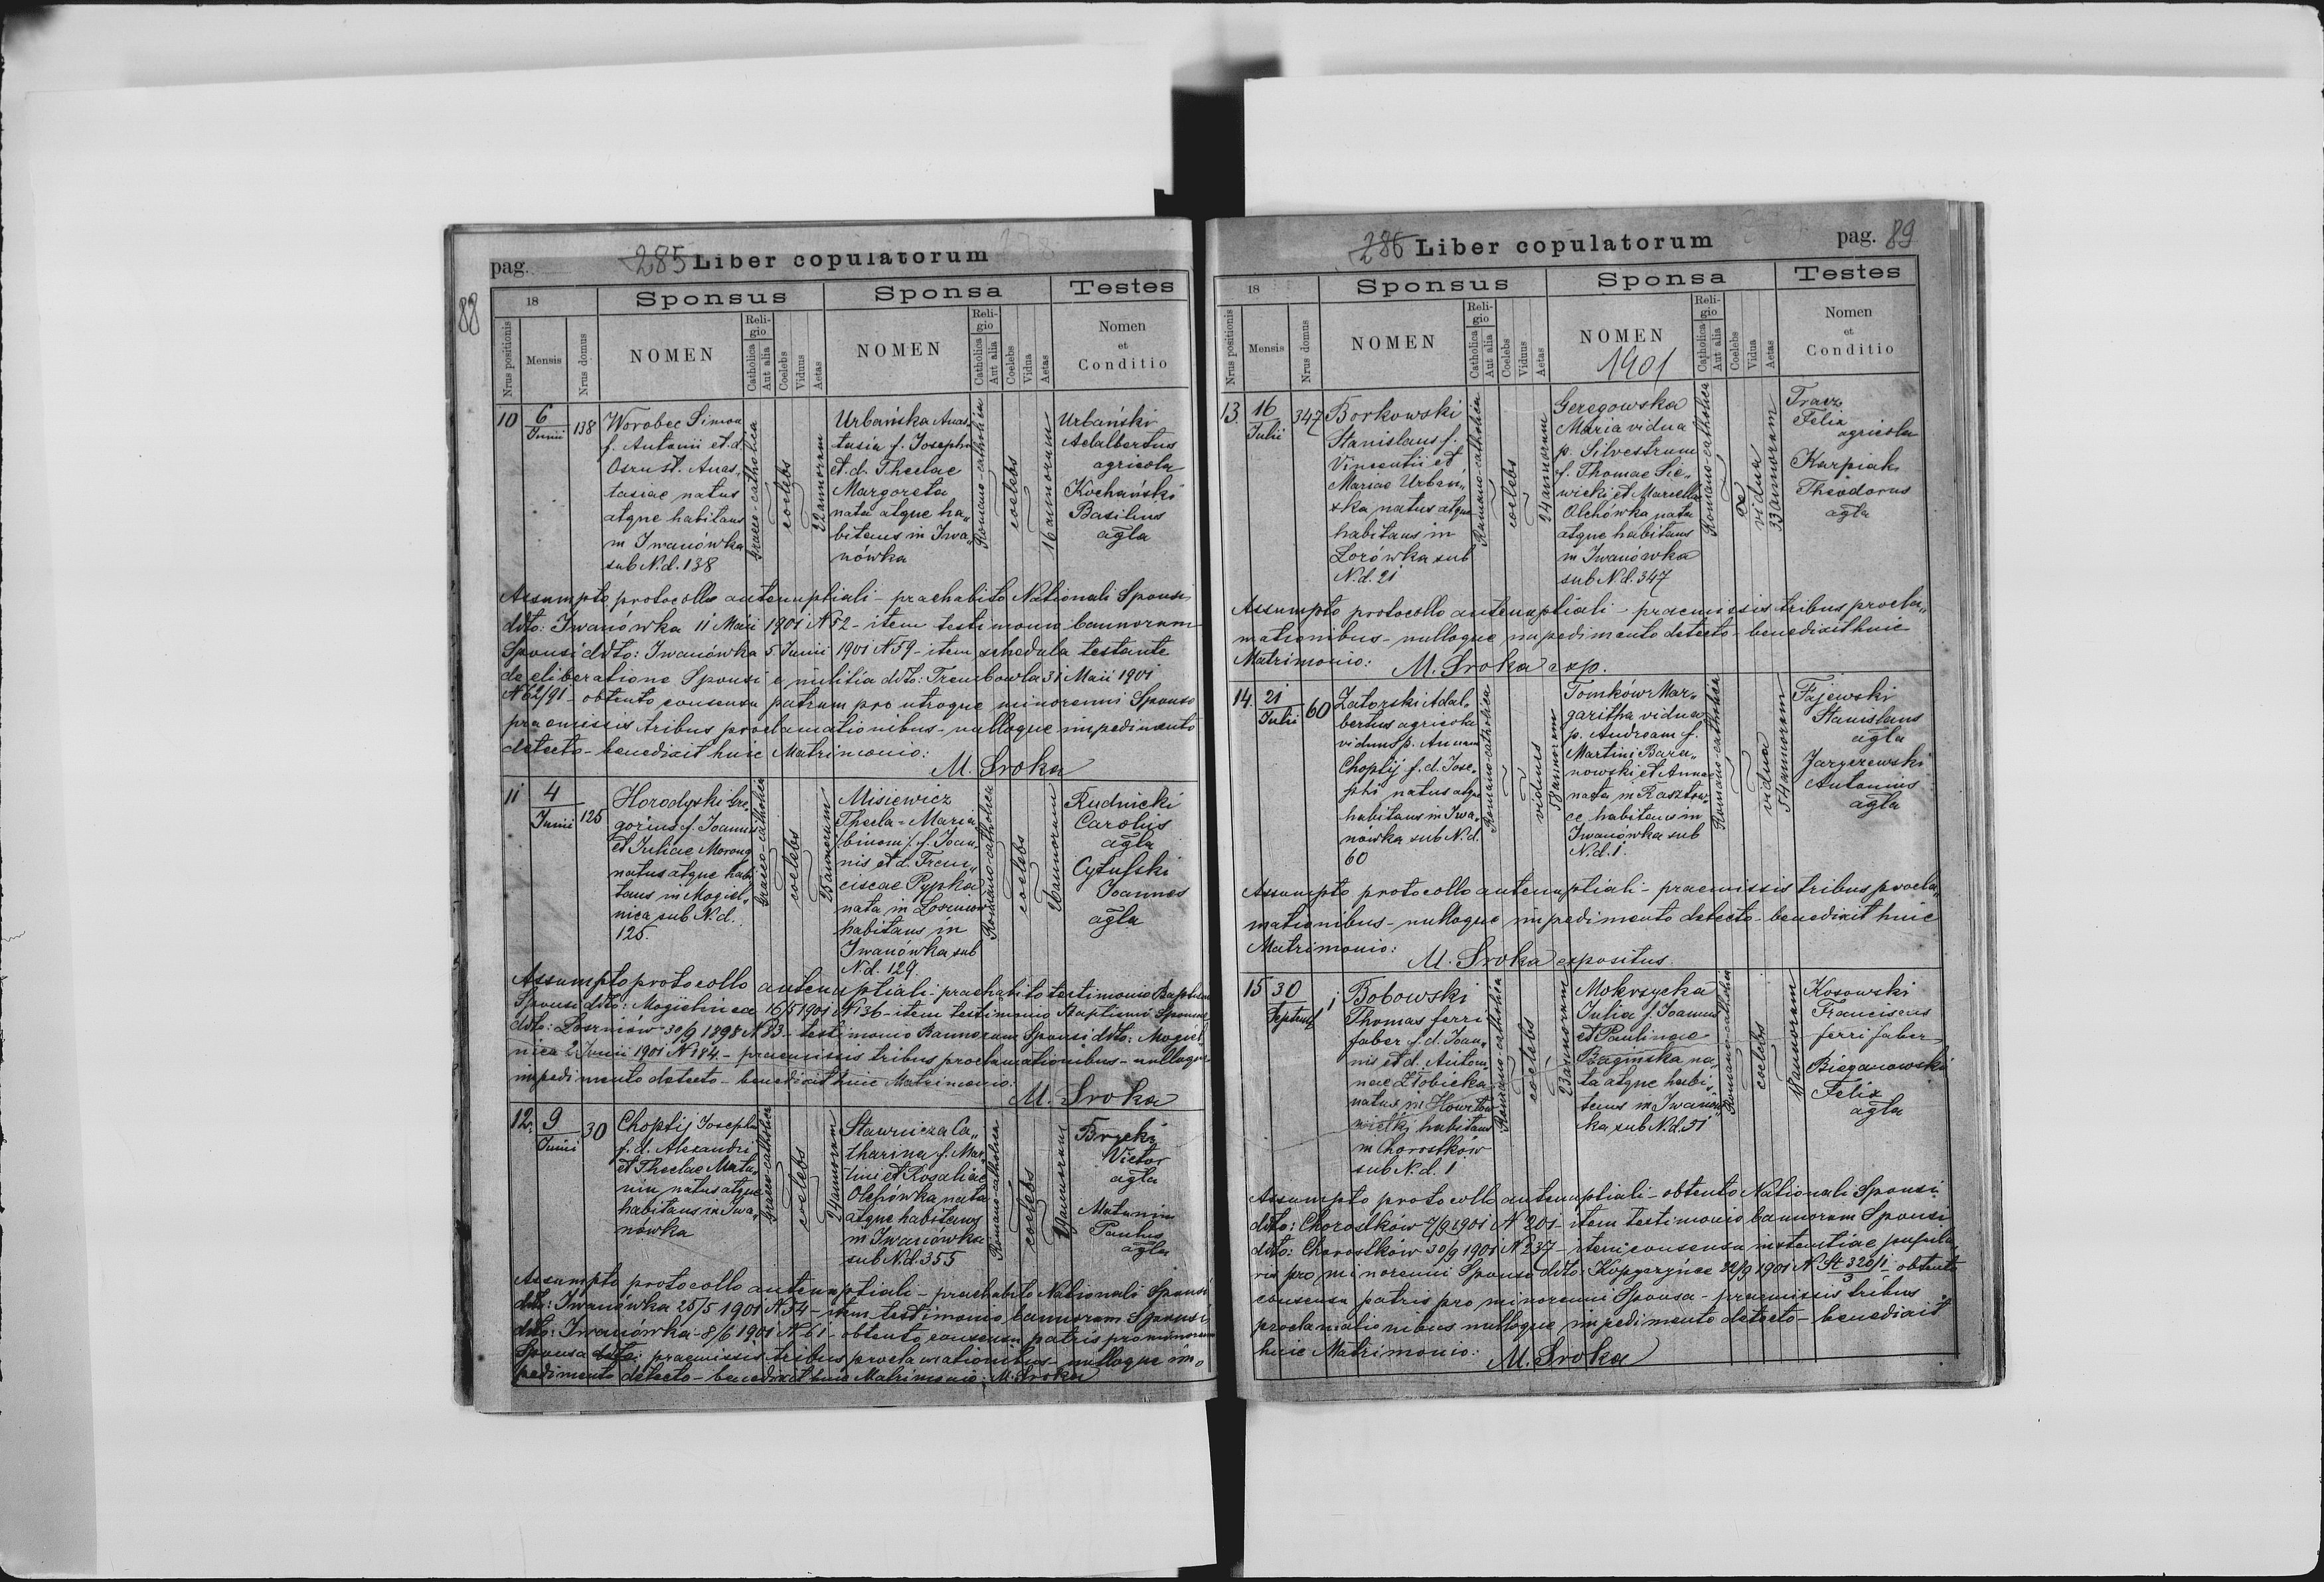 pag.
285 Liber copulatorum
88
18
Sponsus
Sponsa
Testes
Nrus positionis
Mensis
Nrus domus
NOMEN
Reli-
gio
Catholica
Aut alia
Coelebs
Viduus
Aetas
NOMEN
Reli-
gio
Catholica
Aut alia
Coelebs
Vidua
Aetas
Nomen
et
Conditio
10
6
Junii
138
Worobec Simon
f. Antonii et d.
Osrust. Anas„
tasiae natus
atque habitans
in Iwanówka
sub N.d. 138
graeco-catholica
coelebs
22 annorum
Urbańska Anas„
tasia f. Josephi
et d. Theclae
Margoreta
nata atque ha„
bitans in Iwa„
nówka
Romano-catholica
coelebs
16 annorum
Urbański
Adalbertus
agricola
Kochański
Basilius
agla
Assumpto protocollo antenuptiali - praehabito Nationali Sponsi
ddto: Iwanówka 11 Maii 1901 N 52 - item testimonio bannorum
Sponsi ddto: Iwanówka 5 Junii 1901 N 59 - item schedula testante
de liberatione Sponsi e militia ddto: Trembowla 31 Maii 1901
N 62/91 - obtento consensu patrum pro utroque minorenni Sponso
praemissis tribus proclamationibus - nulloque impedimento
detecto - benedixit huic Matrimonio:
M. Sroka
11
4
Junii
125
Horodyski Gre„
gorius f. Joannis
et Juliae Moroug
natus atque habi
tans in Mogiel„
nica sub N.d.
125.
graeco-catholica
coelebs
25 annorum
Misiewicz
Thecla - Maria
/binom/ f. Joan„
nis et d. Fran„
ciscae Pypka
nata in Łoszniow
habitans in
Iwanówka sub
N.d. 129.
Romano-catholica
coelebs
26 annorum
Rudnicki
Carolus
agla
Cytulski
Joannes
agla
Assumpto protocollo antenuptiali - praehabito testimonio Baptismi
Sponsi ddto: Mogielnica 16/5 1901 N 136 - item testimonio Baptismi Sponsae
ddto: Łoszniów - 30/9 1898 N 83 - testimonio Bannorum Sponsi ddto: Mogiel
nica 2 Junii 1901 N 184 - praemissis tribus proclamationibus - nulloque
impedimento detecto - benedixit huic Matrimonio:
M. Sroka
12.
9
Junii
30
Choptij Joseph
f. d. Alexandri
et Theclae Matu„
nin natus atque
habitans in Iwa„
nówka
graeco-catholica
coelebs
24 annorum
Stawnicza Ca„
tharina f. Mar„
tini et Rosaliae
Olchówka nata
atque habitans
in Iwanówka
sub N.d. 355
Romano-catholica
coelebs
annorum
Brycki
Victor
agla
Matunin
Paulus
agla
Assumpto protocollo antenuptiali - praehabito Nationali Sponsi
ddto: Iwanówka 25/5 1901 N 54 - item testimonio bannorum Sponsi
ddto: Iwanówka - 8/6 1901 N 61 - obtento consensu patris pro minorenni
Sponsa praemissis tribus proclamationibus - nulloque im„
pedimento detecto - benedixit huic Matrimonio: M. Sroka
286 Liber copulatorum
pag. 89
18
Sponsus
Sponsa
Testes
Nrus positionis
Mensis
Nrus domus
NOMEN
Reli-
gio
Catholica
Aut alia
Coelebs
Viduus
Aetas
NOMEN
1901
Reli-
gio
Catholica
Aut alia
Coelebs
Vidua
Aetas
Nomen
et
Conditio
13.
16
Julii
347
Borkowski
Stanislaus f.
Vincentii et
Mariae Urbań„
ska natus atque
habitans in
Lorówka sub
N.d. 21
Romano-catholica
coelebs
24 annorum
Geregowska
Maria vidua
p. Silvestrum
f. Thomae Sie„
wicki et Marcella
Olchówka nata
atque habitans
in Iwanówka
sub N.d. 347
Romano-catholica
vidua
33 annorum
Tracz
Felix
agricola
Karpiak
Theodorus
agla
Assumpto protocollo antenuptiali - praemissis tribus procla„
mationibus - nulloque impedimento detecto - benedixit huic
Matrimonio: M. Sroka exp.
14.
21
Julii
60
Zatorski Adal„
bertus agricola
viduus p. Annam
Choptij f. d. Jose„
phi natus atque
habitans in Iwa„
nówka sub N.d.
60
Romano-catholica
viduus
58 annorum
Tomków Mar„
garitha vidua
p. Andream f.
Martini Bara„
nowski et Annae
nata in Rasztow„
ce habitans in
Iwanówka sub
N.d. 1.
Romano-catholica
vidua
54 annorum
Fajewski
Stanislaus
agla
Jarczewski
Antonius
agla
Assumpto protocollo antenuptiali - praemissis tribus procla„
mationibus - nulloque impedimento detecto - benedixit huic
Matrimonio:
M. Sroka expositus.
15
30
Septemb
1
Bobowski
Thomas ferri
faber f. d. Joan„
nis et d. Anton„
inae Złobicka
natus in Howiłow
wielki habitans
in Chorostków
sub N.d. 1
Romano-catholica
coelebs
23 annorum
Mokrzycka
Julia f. Joannis
et Paulinae
Bagińska na„
ta atque habi„
tans in Iwanów„
ka sub N.d. 51
Romano-catholica
coelebs
18 annorum
Kosowski
Franciscus
ferri faber
Bieganowski
Felix
agla
Assumpto protocollo antenuptiali - obtento Nationali Sponsi
ddto: Chorostków 7/9 1901 N 201 - item testimonio bannorum Sponsi
ddto: Chorostków 30/9 1901 N 237 - item consensu instantiae pupila„
ris pro minorenni Sponso ddto: Kopyczyńce 22/9 1901 N St 320/1 / 3 - obtento
consensu patris pro minorenni Sponsa - praemissis tribus
proclamationibus nulloque impedimento detecto - benedixit
huic Matrimonio: M. Sroka